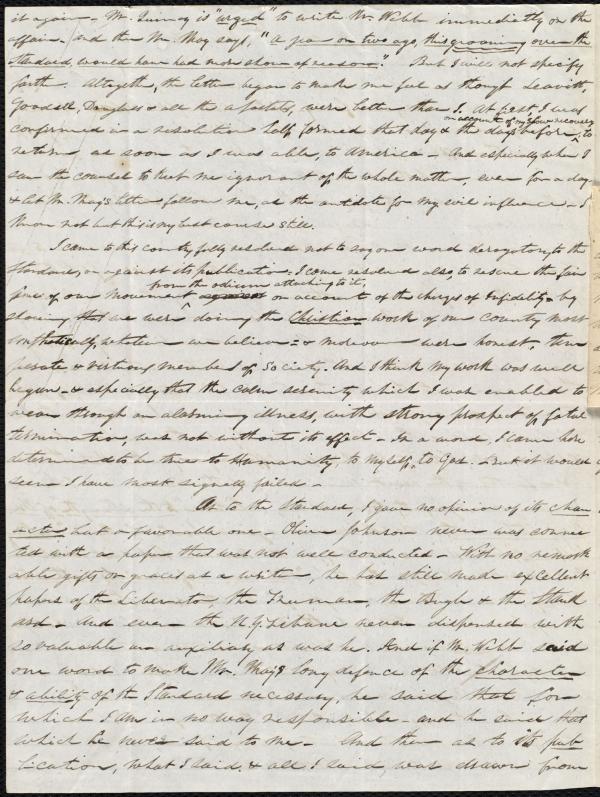 it again - Mr. Quincy is "urged" to write Mr. Webb immediately on the
affair. And then Mr. May says, "A year or two ago, this groaning over the
Standard, would have had more show of reason." But I will not specify
farth. Altogeth, the letter began to make me feel as though Leavitt,
Goodell, Douglass & all the apostates, were better than I. At best, I was
on account of my slow recovery
confirmed in a resolution half formed that day & the days before, to
return as soon as I was able, to America - And especially when I
saw the counsel to keep me ignorant of the whole matter, even for a day
& let Mr. May's letter follow me, as the antidote for my evil influence - I
know not but this is my best course still.
I came to this country fully resolved not to say one word derogatory to the
Standard, or against its publication. I came resolved also, to rescue the fair
from the odium attaching to it,
fame of our movement on account of the charges of Infidelity - by
showing that we were doing the Christian work of our country most
emphatically, whatever we believe - & moreover were honest, tem
perate & virtuous members of Society. And I think my work was well
begun - & especially that the calm serenity which I was enabled to
wear through an alarming illness, with strong prospect of fatal
termination, was not without its effect - In a word, I came here
determined to be true to Humanity, to myself, to God. - But it would
seem I have most signally failed -
As to the Standard, I gave no opinion of its char
acter but a favorable one - Oliver Johnson never was connec
ted with a paper that was not well conducted - With no remark
able gifts or graces as a writer, he has still made excellent
papers of the Liberator, the Freeman, the Bugle & the Stand
ard - And even the N.Y. Tribune never dispensed with
so valuable an auxiliary as was he. And if Mr. Webb said
one word to make Mr. May's long defence of the character
& ability of the Standard necessary, he said that for
which I am in no way responsible - and he said that
which he never said to me - And then as to its pub
lication, what I said, & all I said, was drawn from